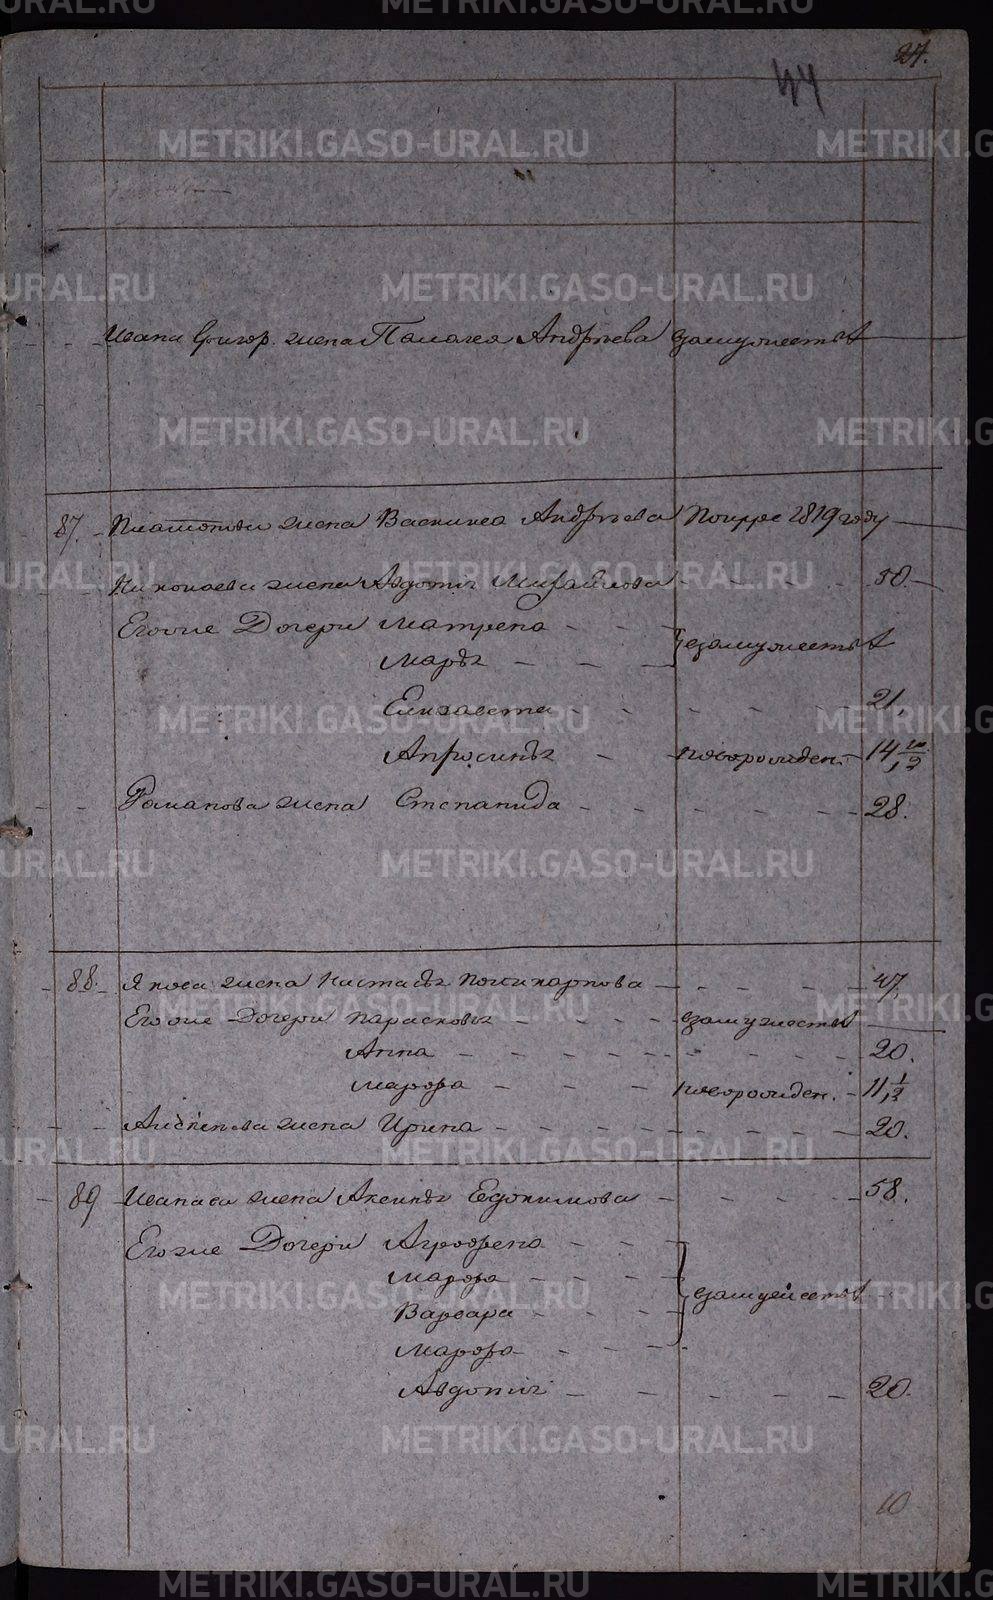 27.
44
Ивана Григор. жена Палагея Андреева взамужестве
87. Платонова жена Василиса Андреева Померре 1819 году
Николаева жена Авдотья Михайлова 50.
Егоже Дочери Матрена
Марья взамужестве
Елизавета 21
Апросинья новорожден. 14 10/12
Романова жена Степанида 28.
88. Якова жена Настасья Поликарпова 47,
Егоже Дочери Парасковья взамужестве
Анна 20.
Марфа новорожден. 11 1/2
жена Ирина 20.
89 Иванова жена Аксинья Евдокимова 58.
Егоже Дочери Агрофена
Марфа
Варвара взамужестве
Марфа
Авдотья 20.
10
METRIKI.GASO-URAL.RU